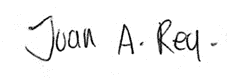 Juan A. Rey.